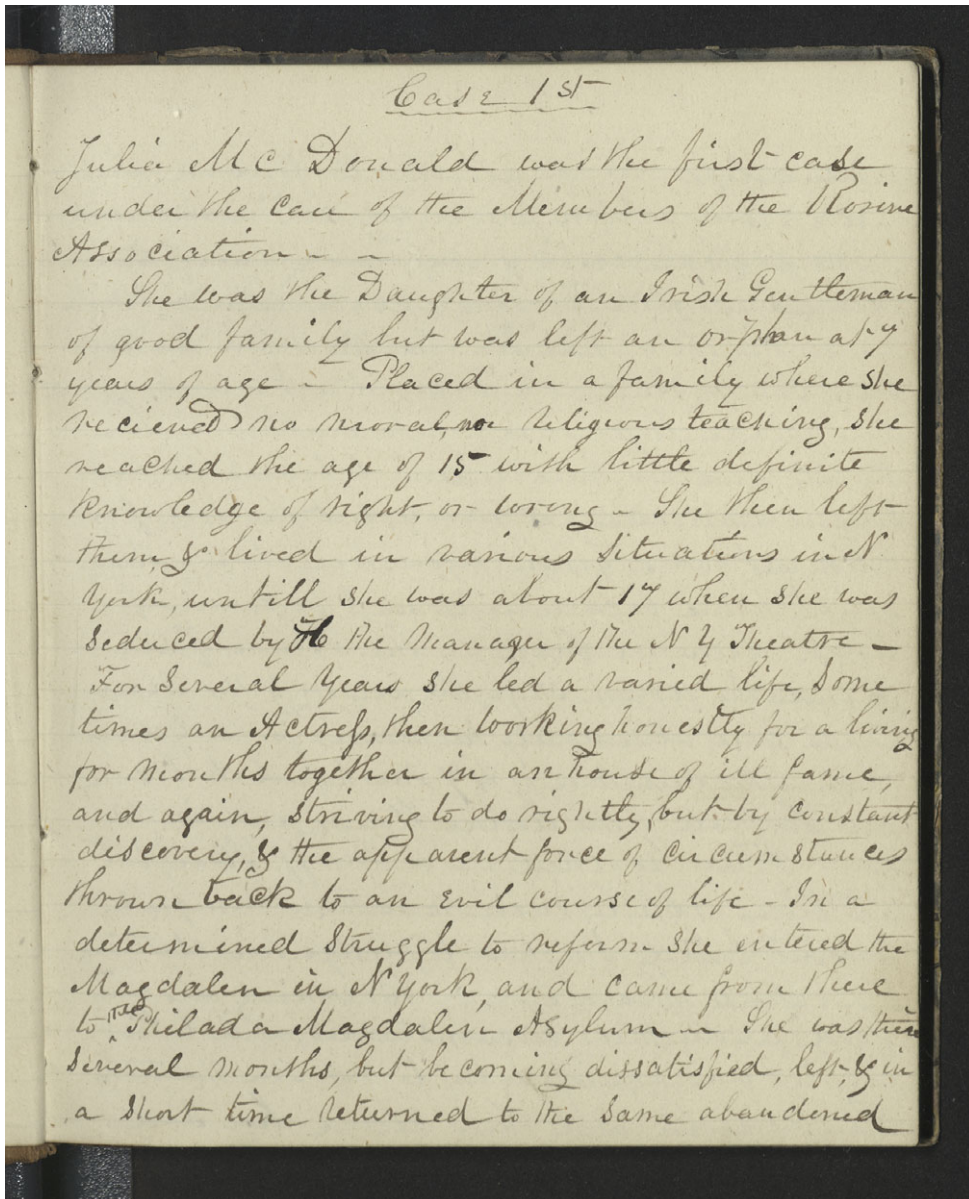 Case 1st
Julia Mc Donald was the first case
under the care of the Members of the Rosine
Association - -
She was the Daughter of an Irish Gentleman
of good family but was left an orphan at 7
years of age - Placed in a family where she
recieved no moral, nor religious teaching, she
reached the age of 15 with little definite
knowledge of right, or wrong - She then left
them, & lived in various situations in N
York, untill she was about 17 when she was
seduced by H the Manager of the N Y Theatre -
For Several Years she led a varied life, Some
times an Actress, then working honestly for a living
for months together in an house of ill fame,
and again, striving to do rightly, but by constant
discovery, & the apparent force of circumstances
thrown back to an Evil course of life - In a
determined struggle to reform she entered the
Magdalen in N York, and came from there
to the Philada Magdalen Asylum - She was there
Several months, but becoming dissatisfied, left, & in
a short time returned to the same abandoned